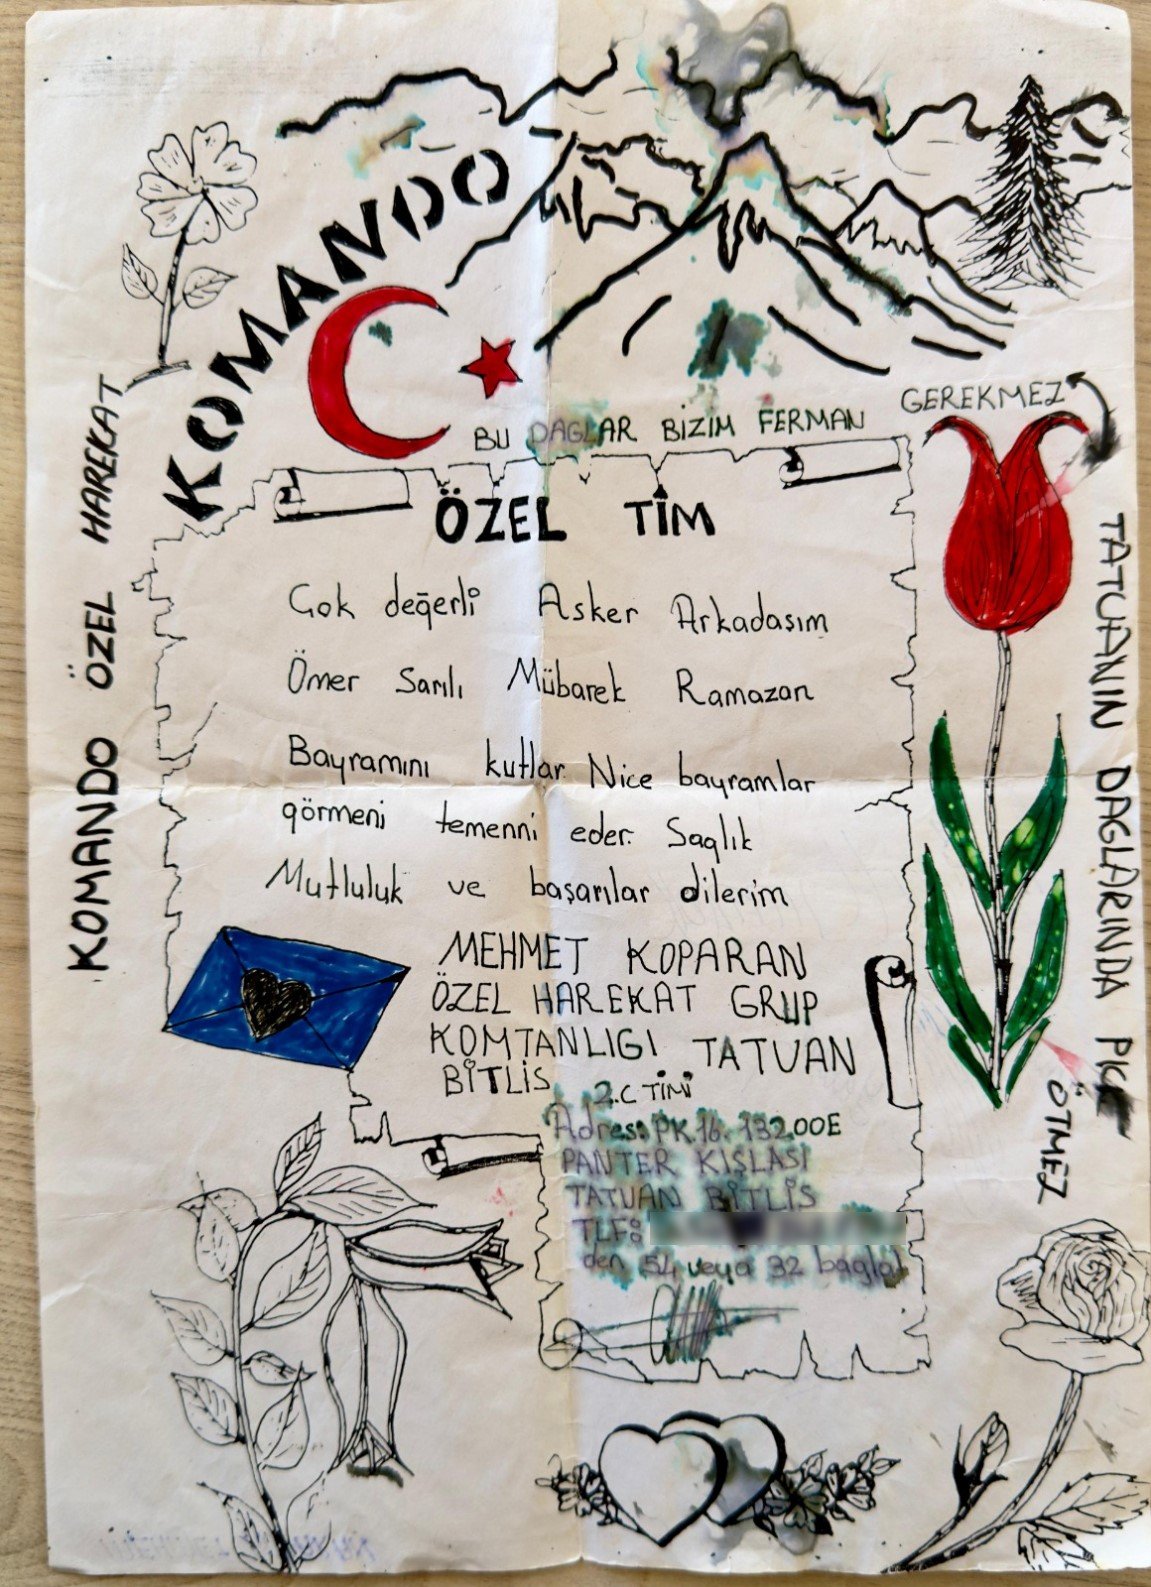 KOMANDO
BU DAGLAR BİZİM FERMAN GEREKMEZ
ÖZEL TİM
Çok değerli Asker Arkadaşım
Ömer Sarılı Mübarek Ramazan
Bayramını kutlar Nice bayramlar
görmeni temenni eder. Saglık
Mutluluk ve başarılar dilerim
MEHMET KOPARAN
ÖZEL HAREKAT GRUP
KOMTANLIGI TATUAN
BİTLİS
2.C TİMİ
Adres: PK.16. 132.00E
PANTER KIŞLASI
TATUAN BİTLİS
TLF:
den 54 veya 32 bagla
KOMANDO ÖZEL HAREKAT
TATUANIN DAGLARINDA PKK
ÖTMEZ